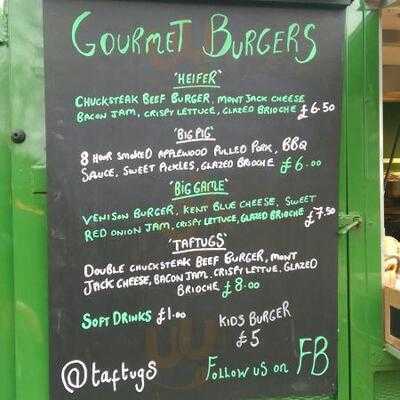 GOURMET BURGERS
'HEIFER'
CHUCKSTEAK BEEF BURGER, MONT JACK CHEESE
BACON JAM, CRISPY LETTUCE, GLAZED BRIOCHE £6.50
'BIG PIG'
8 HOUR SMOKED APPLEWOOD PULLED PORK, BBQ
SAUCE, SWEET PICKLES, GLAZED BRIOCHE £6.00
'BIG GAME'
VENISON BURGER, KENT BLUE CHEESE, SWEET
RED ONION JAM, CRISPY LETTUCE, GLAZED BRIOCHE £7.50
'TAFTUGS'
DOUBLE CHUCKSTEAK BEEF BURGER, MONT
JACK CHEESE, BACON JAM, CRISPY LETTUE, GLAZED
BRIOCHE £8.00
SOFT DRINKS £1.00
KIDS BURGER
£5
@taftugs
FOLLOW US ON FB